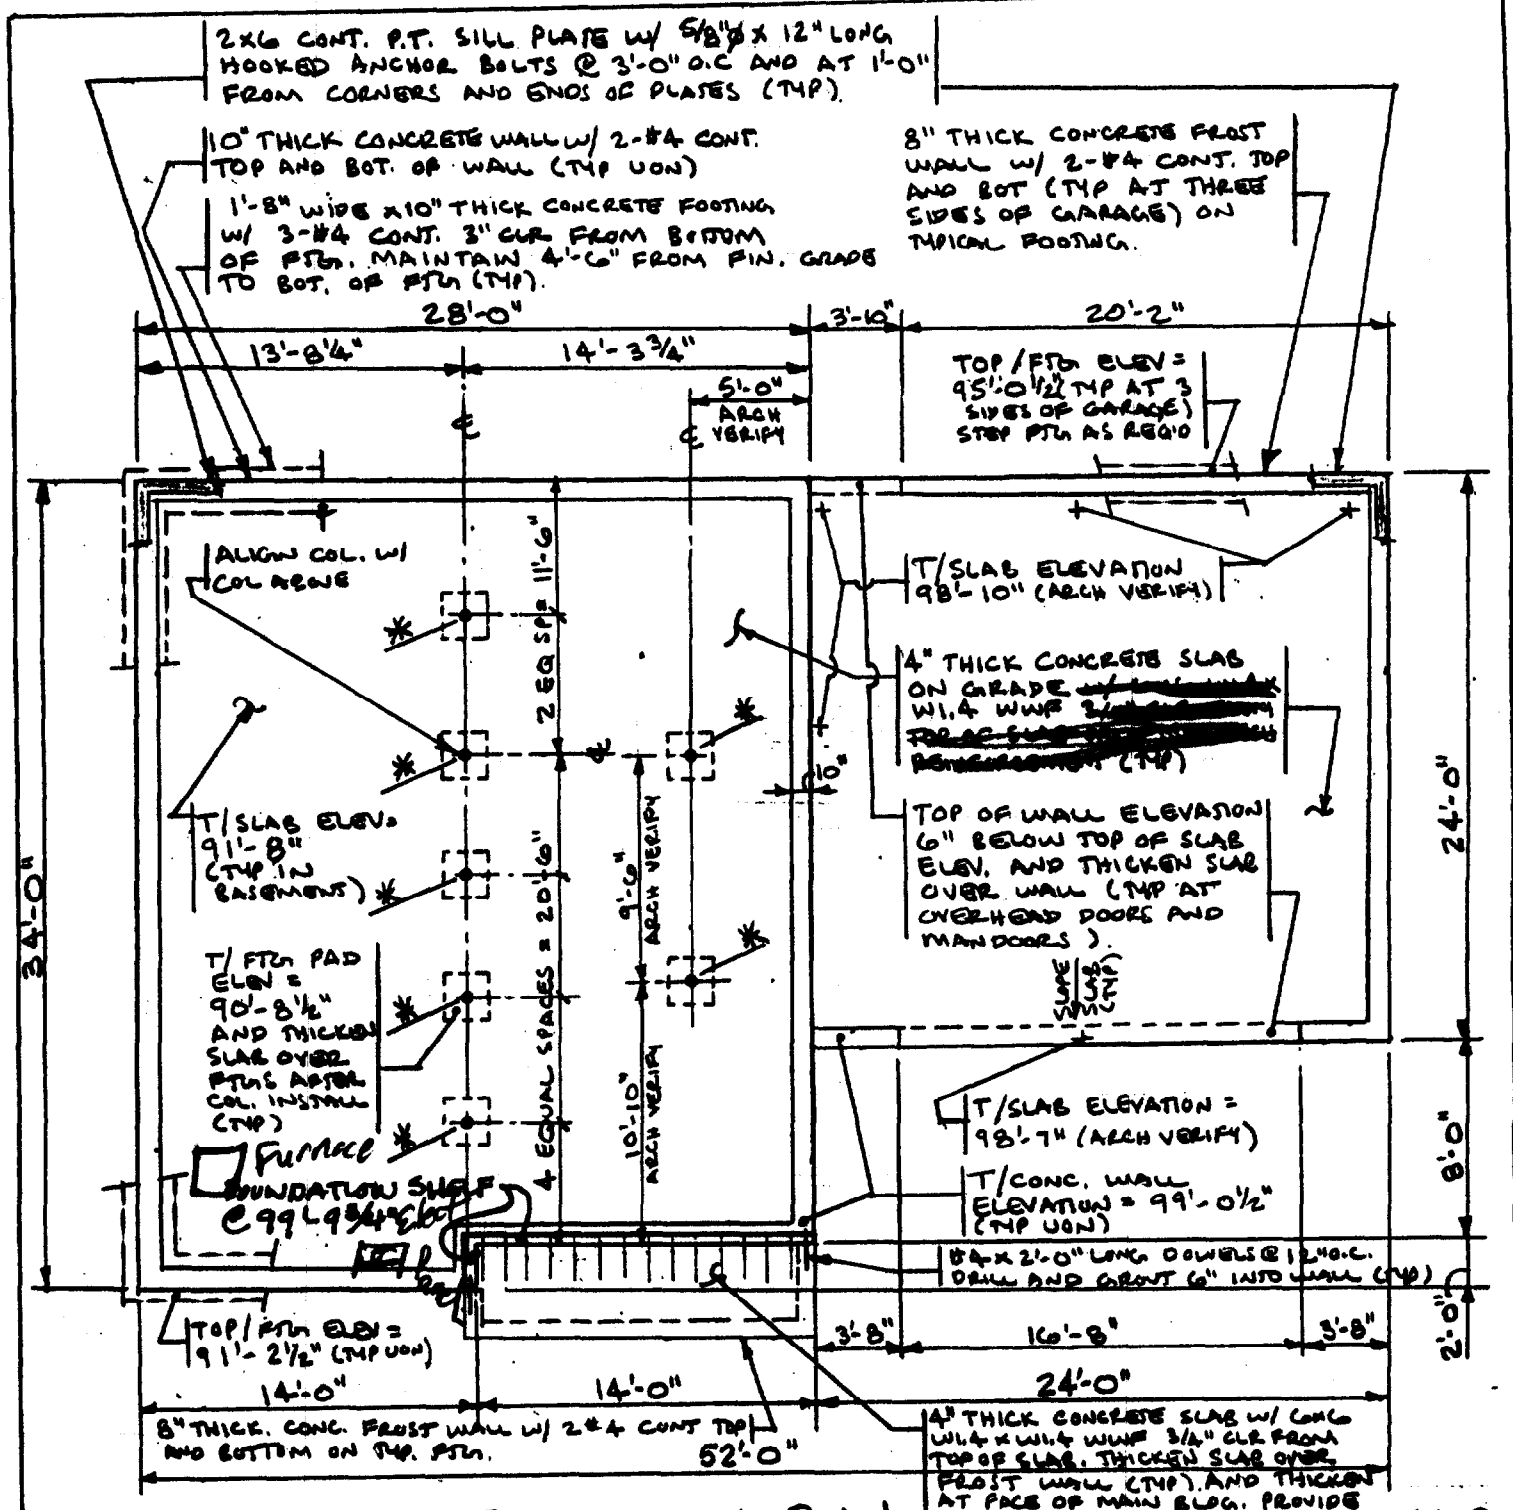 2X6 CONT. P.T. SILL PLATE W/ 5/8"Ø X 12" LONG
HOOKED ANCHOR BOLTS @ 3'-0" O.C AND AT 1'-0"
FROM CORNERS AND ENDS OF PLATES (TYP).
10" THICK CONCRETE WALL W/ 2-#4 CONT.
TOP AND BOT. OF WALL (TYP UON)
1'-8" WIDE X10" THICK CONCRETE FOOTING
W/ 3-#4 CONT. 3" CLR FROM BOTTOM
OF FTG. MAINTAIN 4'-6" FROM FIN. GRADE
TO BOT. OF FTG (TYP).
8" THICK CONCRETE FROST
WALL W/ 2-#4 CONT. TOP
AND BOT (TYP AT THREE
SIDES OF GARAGE) ON
TYPICAL FOOTING.
28'-0"
3'-10"
20'-2"
13'-8 1/4"
14'-3 3/4"
5'-0"
ARCH
VERIFY
TOP/FTG ELEV =
95'-0 1/2" (TYP AT 3
SIDES OF GARAGE)
STEP FTG AS REQ'D
ALIGN COL. W/
COL ABOVE
2 EQ SP = 11'-6"
T/SLAB ELEVATION
98'-10" (ARCH VERIFY)
4" THICK CONCRETE SLAB
ON GRADE
W1.4 WWF
(TYP)
10"
T/SLAB ELEV=
91'-8"
(TYP IN
BASEMENT)
TOP OF WALL ELEVATION
6" BELOW TOP OF SLAB
ELEV. AND THICKEN SLAB
OVER WALL (TYP AT
OVERHEAD DOORS AND
MANDOORS).
34'-0"
24'-0"
9'-6"
ARCH VERIFY
4 EQUAL SPACES = 20'-6"
SLOPE
SLAB
(TYP)
T/ FTG PAD
ELEV =
90'-8 1/2"
AND THICKEN
SLAB OVER
FTGS AFTER
COL. INSTALL
(TYP)
10'-10"
ARCH VERIFY
T/SLAB ELEVATION =
98'-7" (ARCH VERIFY)
8'-0"
Furnace
FOUNDATION SHELF
T/CONC. WALL
ELEVATION = 99'-0 1/2"
(TYP UON)
#4 X 2'-0" LONG DOWELS @ 12" O.C.
DRILL AND GROUT 6" INTO WALL (TYP)
2'-0"
TOP/FTG ELEV =
91'-2 1/2" (TYP UON)
3'-8"
16'-8"
3'-8"
14'-0"
14'-0"
24'-0"
8" THICK CONC. FROST WALL W/ 2 #4 CONT TOP
AND BOTTOM ON TYP. FTG.
52'-0"
4" THICK CONCRETE SLAB W/ 6X6
W1.4 X W1.4 WWF 3/4" CLR FROM
TOP OF SLAB. THICKEN SLAB OVER
FROST WALL (TYP) AND THICKEN
AT FACE OF MAIN BLDG. PROVIDE